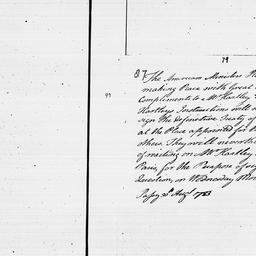 79
87
The American Ministers
making Peace with Great
Compliments to Mr Hartley
Hartleys Instructions will
sign the Definitive Treaty of
at the Place appointed for
others. They will neverthe
of meeting on Mr Hartley
Paris, for the Purpose of
Question, on Wednesday Mor
Passy Augt 1783